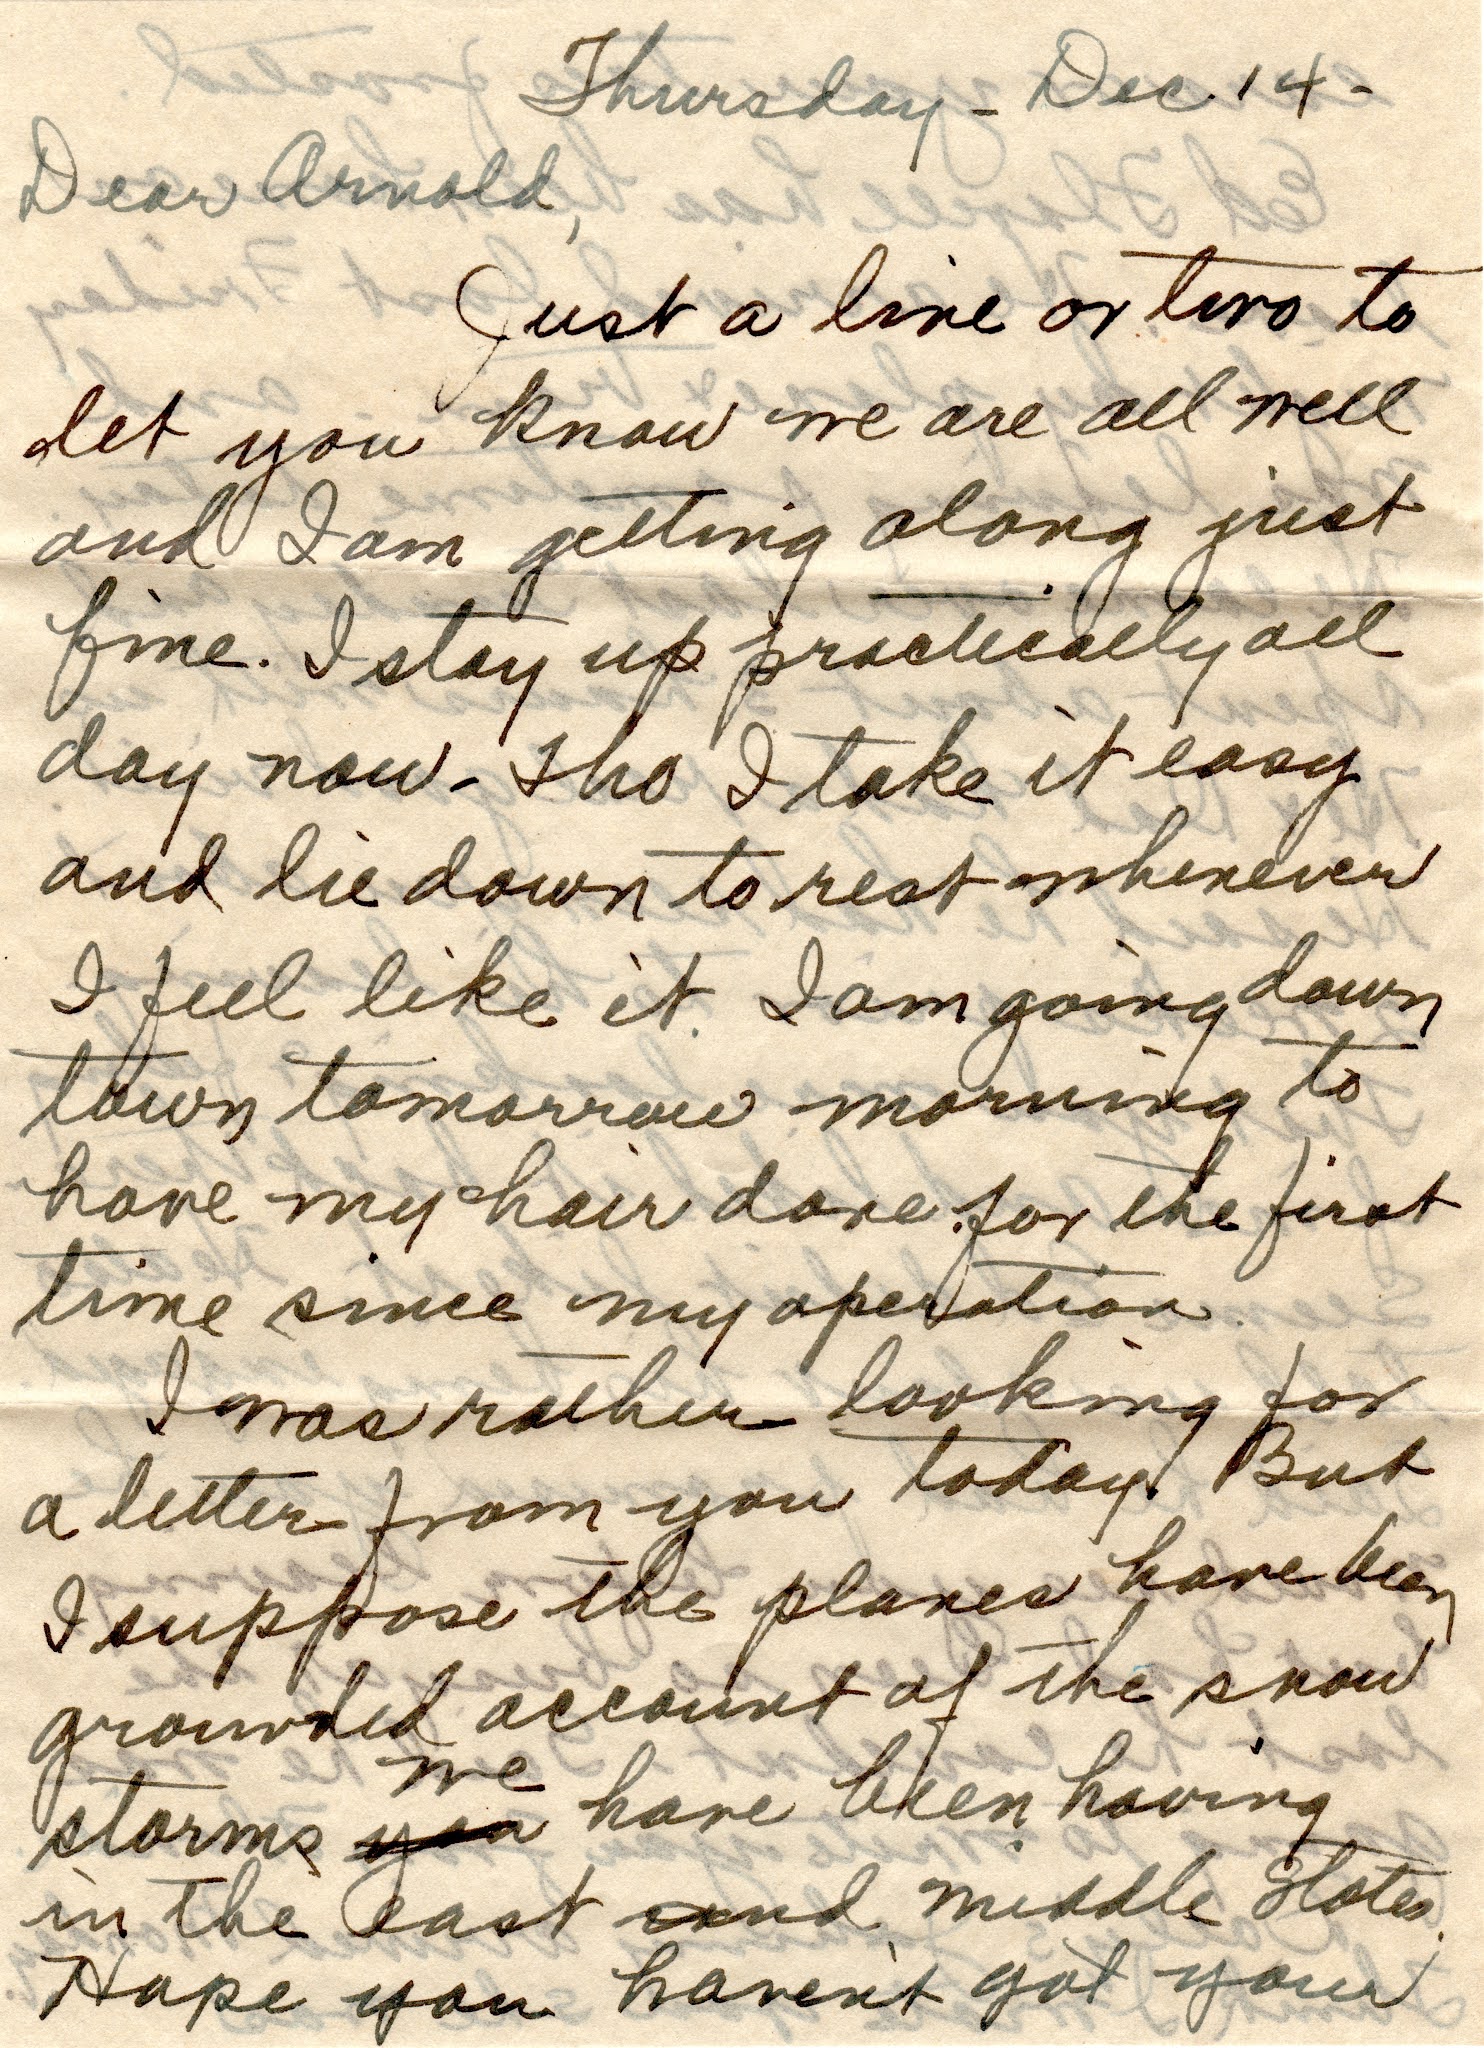 Thursday - Dec. 14 -
Dear Arnold,
Just a line or two to
let you know we are all well
and I am getting along just
fine. I stay up practically all
day now - tho I take it easy
and lie down to rest whenever
I feel like it. I am going down
town tomorrow morning to
have my hair done for the first
time since my operation.
I was rather looking for
a letter from you today. But
I suppose the planes have been
grounded account of the snow
we
storms you have been having
in the east and middle States.
Hope you haven't got your